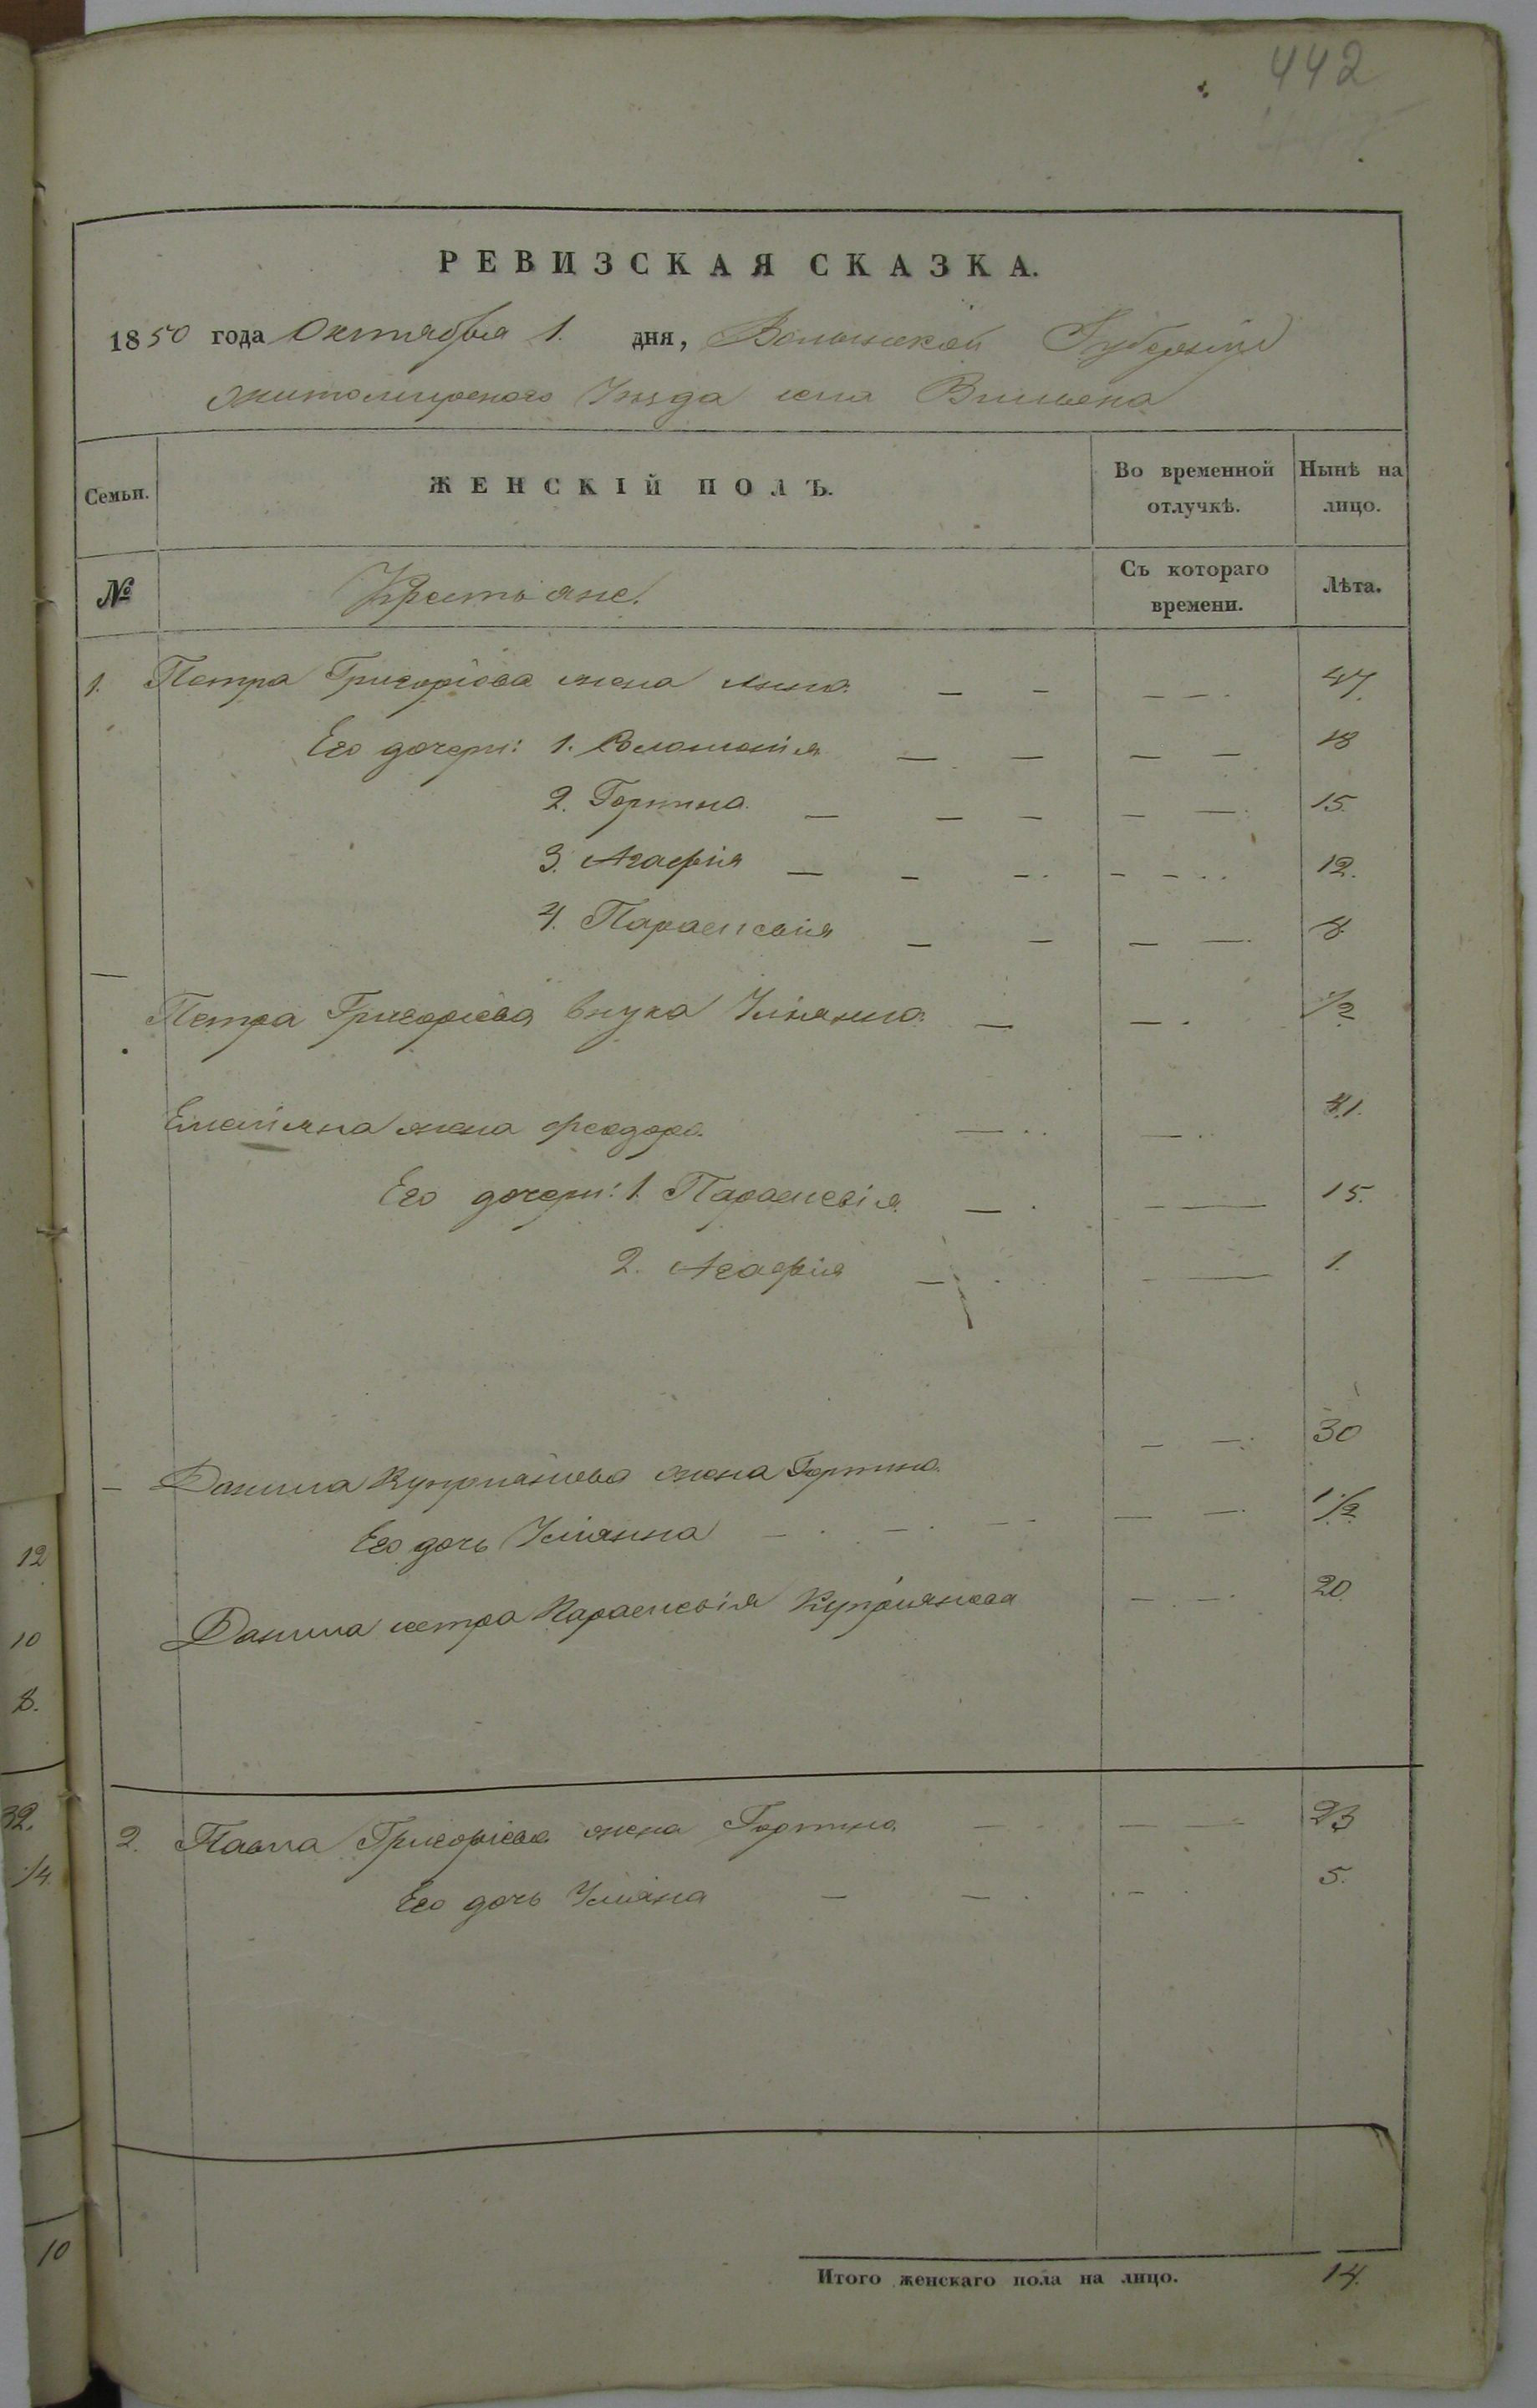 442
РЕВИЗСКАЯ СКАЗКА.
1850 года Октября 1. дня, Волынской Губерніи
Житомирскаго Уѣзда села
Семьи.
ЖЕНСКІЙ ПОЛЪ.
Во временной отлучкѣ.
Нынѣ на лицо.
№
Крестьяне.
Съ котораго времени.
Лѣта.
1. Петра Григоріева жена Анна — — — — 47.
Его дочери: 1. — — — — 18
2. Горпина — — — — — 15.
3. Агафія — — — — — 12.
4. Параскевія — — — — 8.
— Петра Григоріева внука Уліянна — — 1/2
Емеліяна жена Феодора — — 41.
Его дочери: 1. Параскевія — — — 15.
2. Агафія — — — 1.
— Данила Купріянова жена Горпина — — 30
Его дочь Уліянна — — — — — 1 1/2
Данила сестра Параскевія Купріянова — — 20.
2. Павла Григоріева жена Горпина — — — 23
Его дочь Уліяна — — — 5.
Итого женскаго пола на лицо. 14.
12
10
8.
32.
1/4
10